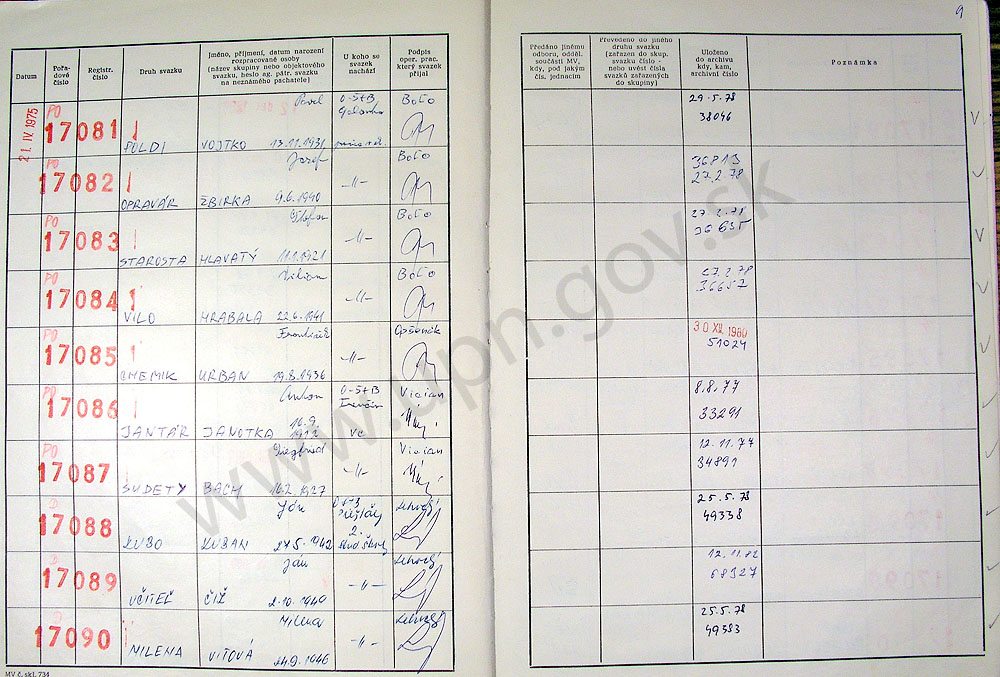 9
Datum
Pořadové číslo
Registr. číslo
Druh svazku
Jméno, příjmení, datum narození
rozpracované osoby
(název skupiny nebo objektového
svazku, heslo ag. pátr. svazku
na neznámého pachatele)
U koho se
svazek
nachází
Podpis
oper. prac.
který svazek
přijal
Předáno jinému
odboru, odděl.
součásti MV,
kdy, pod jakým
čís. jednacím
Převedeno do jiného
druhu svazku
(zařazen do skup.
svazku číslo -
nebo uvést čísla
svazků zařazených
do skupiny)
Uloženo
do archivu
kdy, kam,
archivní číslo
Poznámka
21. IV. 1975
PO
Pavel
Boťo
29.5.78
17081
POLDI VOJTKO 13.11.1931
38046
PO
Jozef
Boťo
36813
17082
OPRAVÁR ŽBIRKA 9.6.1940 -"-
27.2.78
PO
Štefan
Boťo
27.2.78
17083
STAROSTA HLAVATÝ 11.1.1921 -"-
36635
PO
Viliam
Boťo
27.2.78
17084
VILO HRABALA 22.6.1941 -"-
36657
PO
František
30 XII. 1980
17085
CHEMIK URBAN 19.8.1936 -"-
51024
PO
Anton
O-ŠtB
Trenčín
Vician
8.8.77
17086
JANTÁR JANOTKA 16.9.
33291
PO
Siegfried
Vician
12.11.77
17087
SUDETY BACH 16.2.1927 -"-
34891
D
Ján
25.5.78
17088
KUBO KUBAN 27.5.1942
49338
D
Ján
12.11.82
17089
UČITEĽ ČIŽ 2.10.1949 -"-
68327
D
Milena
25.5.78
17090
MILENA VITOVÁ 24.9.1946 -"-
49383
MV č. skl. 734
www.upn.gov.sk